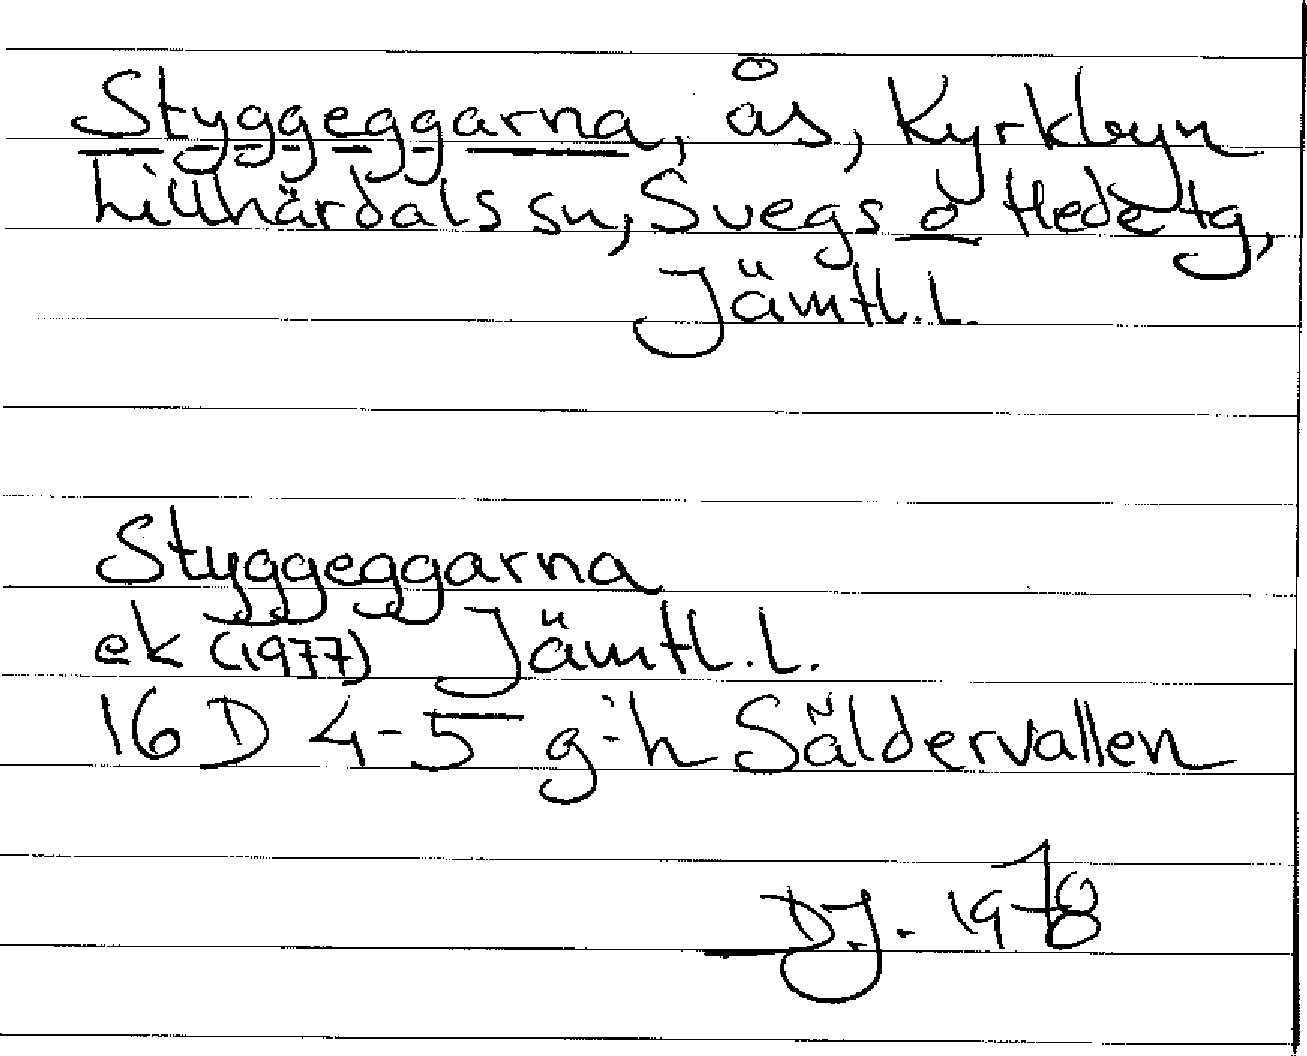 Styggeggarna, ås, Kyrkbyn
Lillhärdals sn, Svegs o Hede tg,
Jämtl.L.
Styggeggarna
ek (1977) Jämtl.L.
16 D 4-5 g-h Säldervallen
D.J. 1978